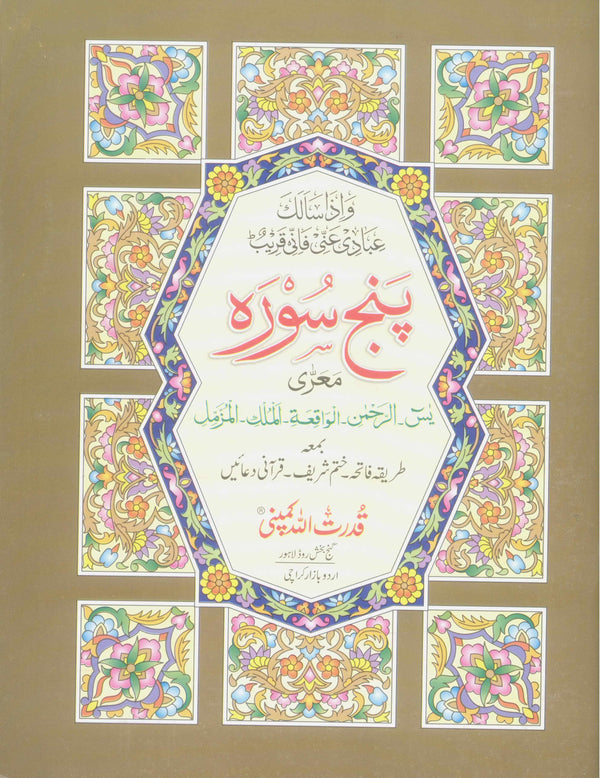 وَاِذَا سَاَلَكَ
عِبَادِیْ عَنِّیْ فَاِنِّیْ قَرِیْبٌ ؕ
پَنج سُوْرَہ
معرّٰی
یٰسٓ۔ الرَحمٰن۔ الوَاقعَة۔ المُلك۔ المُزمّل
بمعہ
طریقہ فاتحہ۔ ختم شریف۔ قرآنی دعائیں
قُدرت اللہ کمپنی ®
گنج بخش روڈ لاہور
اردو بازار کراچی